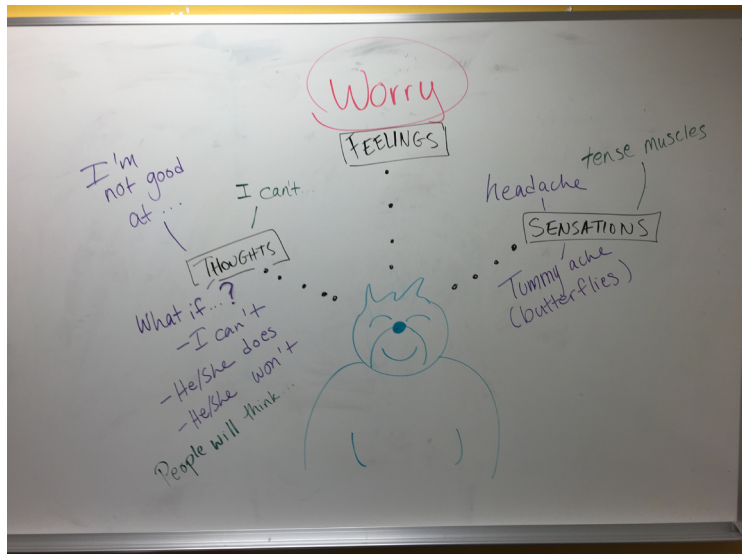 Worry
FEELINGS
I'm
not good
at ...
I can't...
THOUGHTS
What if...?
-I can't
-He/she does
-He/she won't
People will think...
tense muscles
headache
SENSATIONS
Tummy ache
(butterflies)